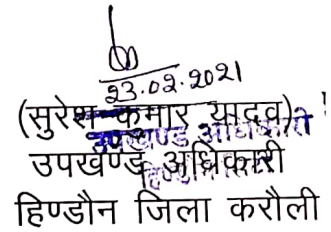 23.02.2021
(सुरेश कुमार यादव)
उपखण्ड अधिकारी
उपखण्ड अधिकारी
हिण्डौन जिला करौली